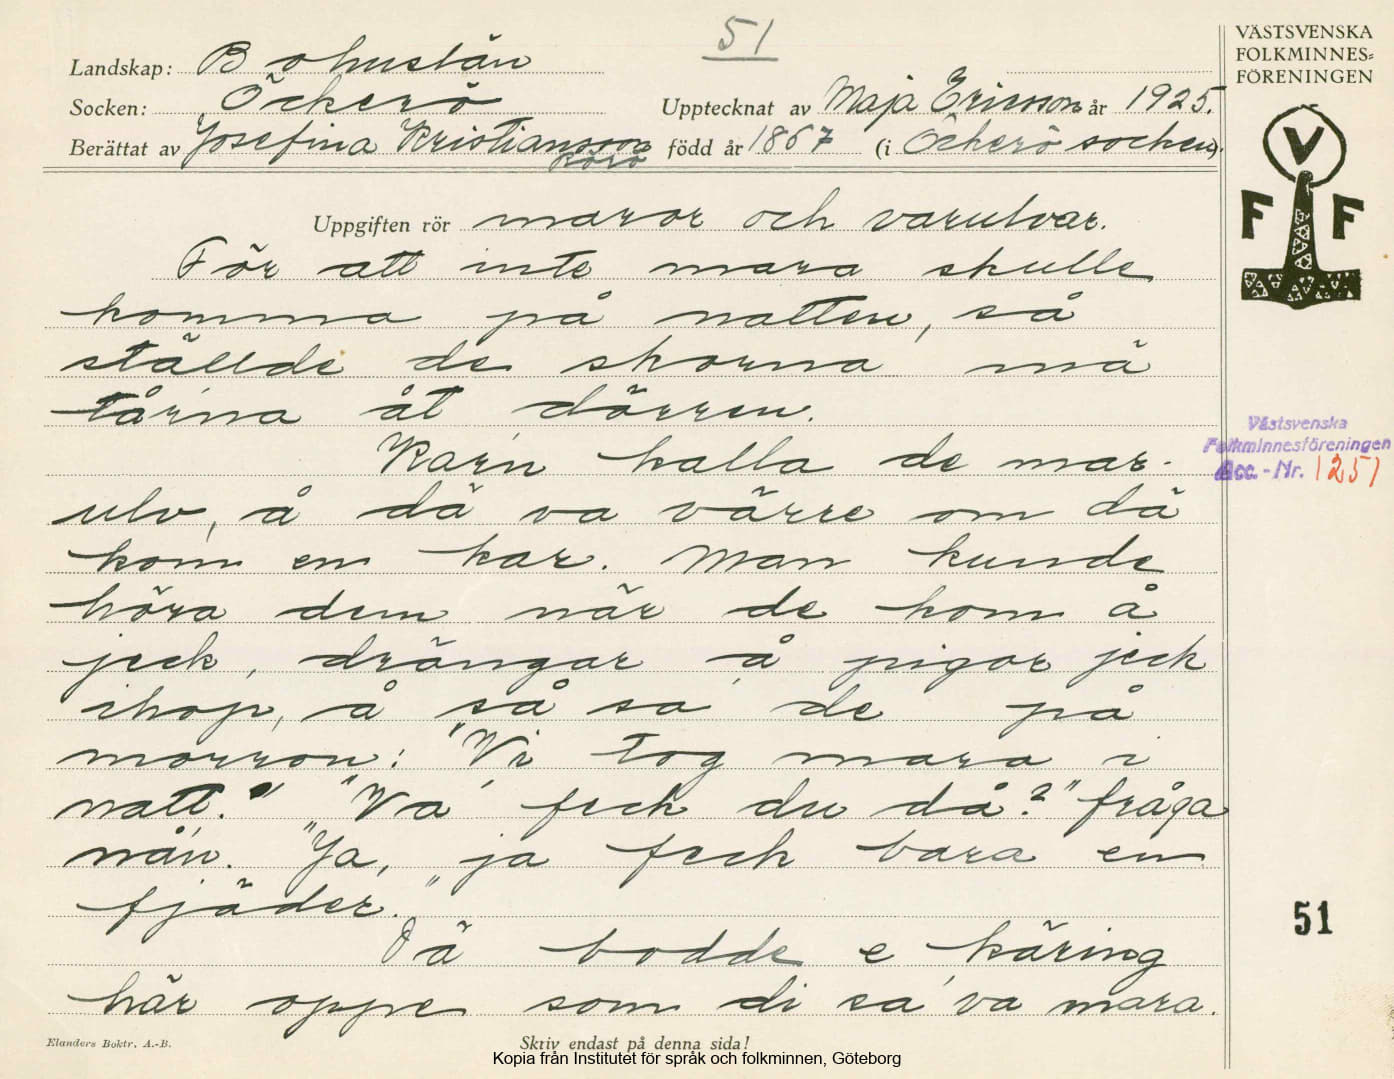 51
Landskap: Bohuslän
Socken: Öckerö
Upptecknat av Maja Ericsson år 1925.
Berättat av Josefina Kristiansson född år 1867 (i Öckerö socken).
Rörö
Uppgiften rör maror och varulvar.
För att inte mara skulle
komma på natten, så
ställde de skorna mä
tårna åt dörren.
Kar'n kalla de mar-
ulv, å dä va värre om dä
kom en kar. Man kunde
höra dem när de kom å
jeck, drängar å pigor jeck
ihop, å så sa de på
morron: "Vi tog mara i
natt." "Va' feck du då?" fråga
nån. "Ja, ja feck bara en
fjäder."
Dä bodde e käring
här oppe som di sa va mara.
Elanders Boktr. A.-B.
Skriv endast på denna sida!
Kopia från Institutet för språk och folkminnen, Göteborg
VÄSTSVENSKA
FOLKMINNES=
FÖRENINGEN
V
F F
Västsvenska
Folkminnesföreningen
Acc.-Nr. 1251
51